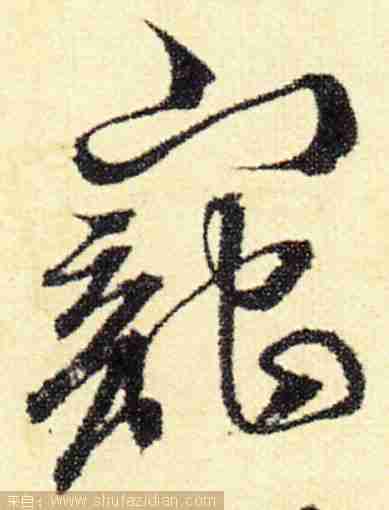 寵
来自：www.shufazidian.com